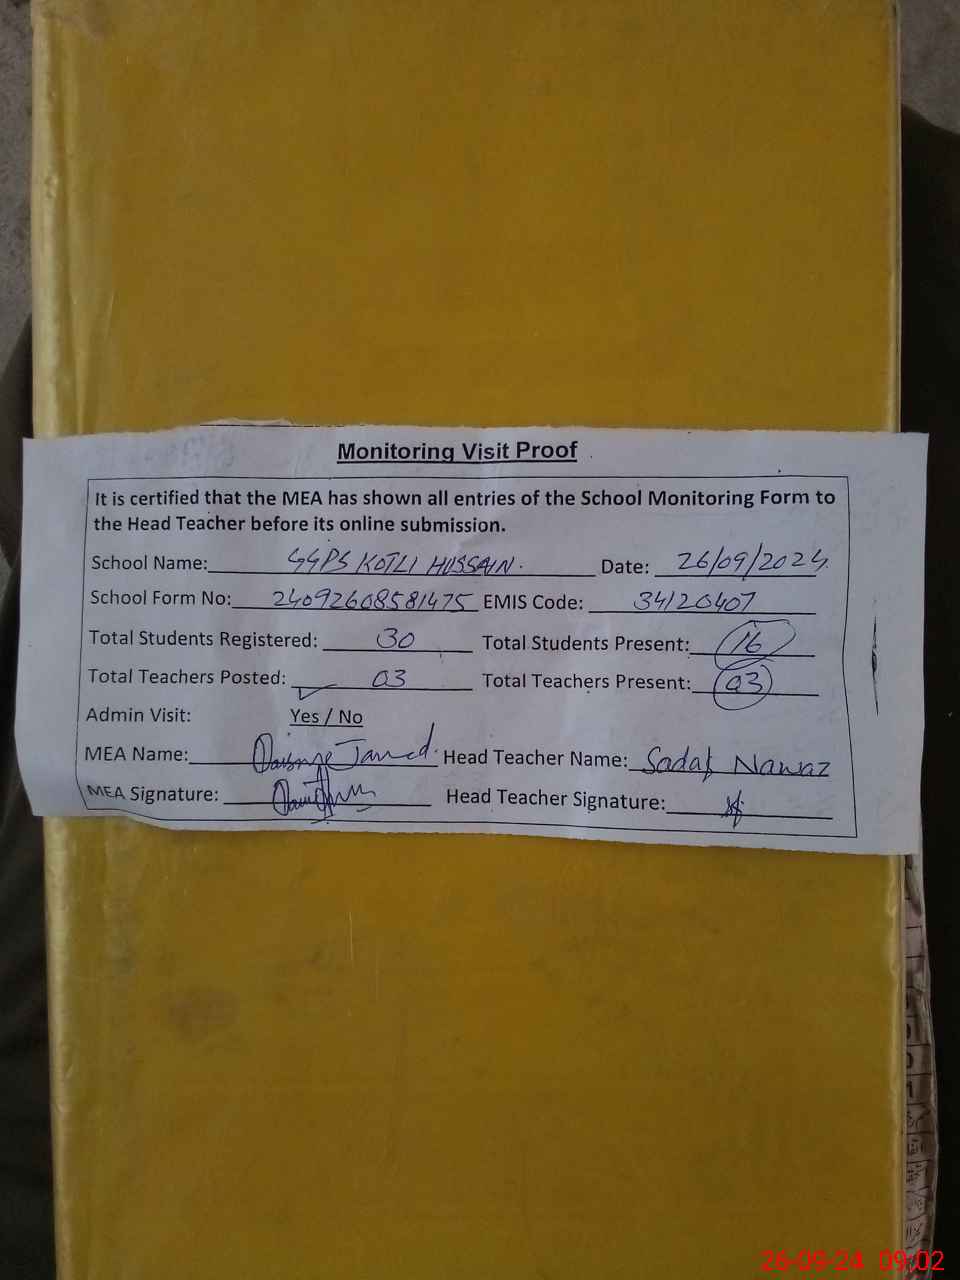 Monitoring Visit Proof
It is certified that the MEA has shown all entries of the School Monitoring Form to
the Head Teacher before its online submission.
School Name: GGPS KOTLI HUSSAIN. Date: 26/09/2024
School Form No: 24092608581475 EMIS Code: 34120407
Total Students Registered: 30 Total Students Present: 16
Total Teachers Posted: 03 Total Teachers Present: 03
Admin Visit: Yes / No
MEA Name: Head Teacher Name: Sadaf Nawaz
MEA Signature: Head Teacher Signature:
26-09-24 09:02